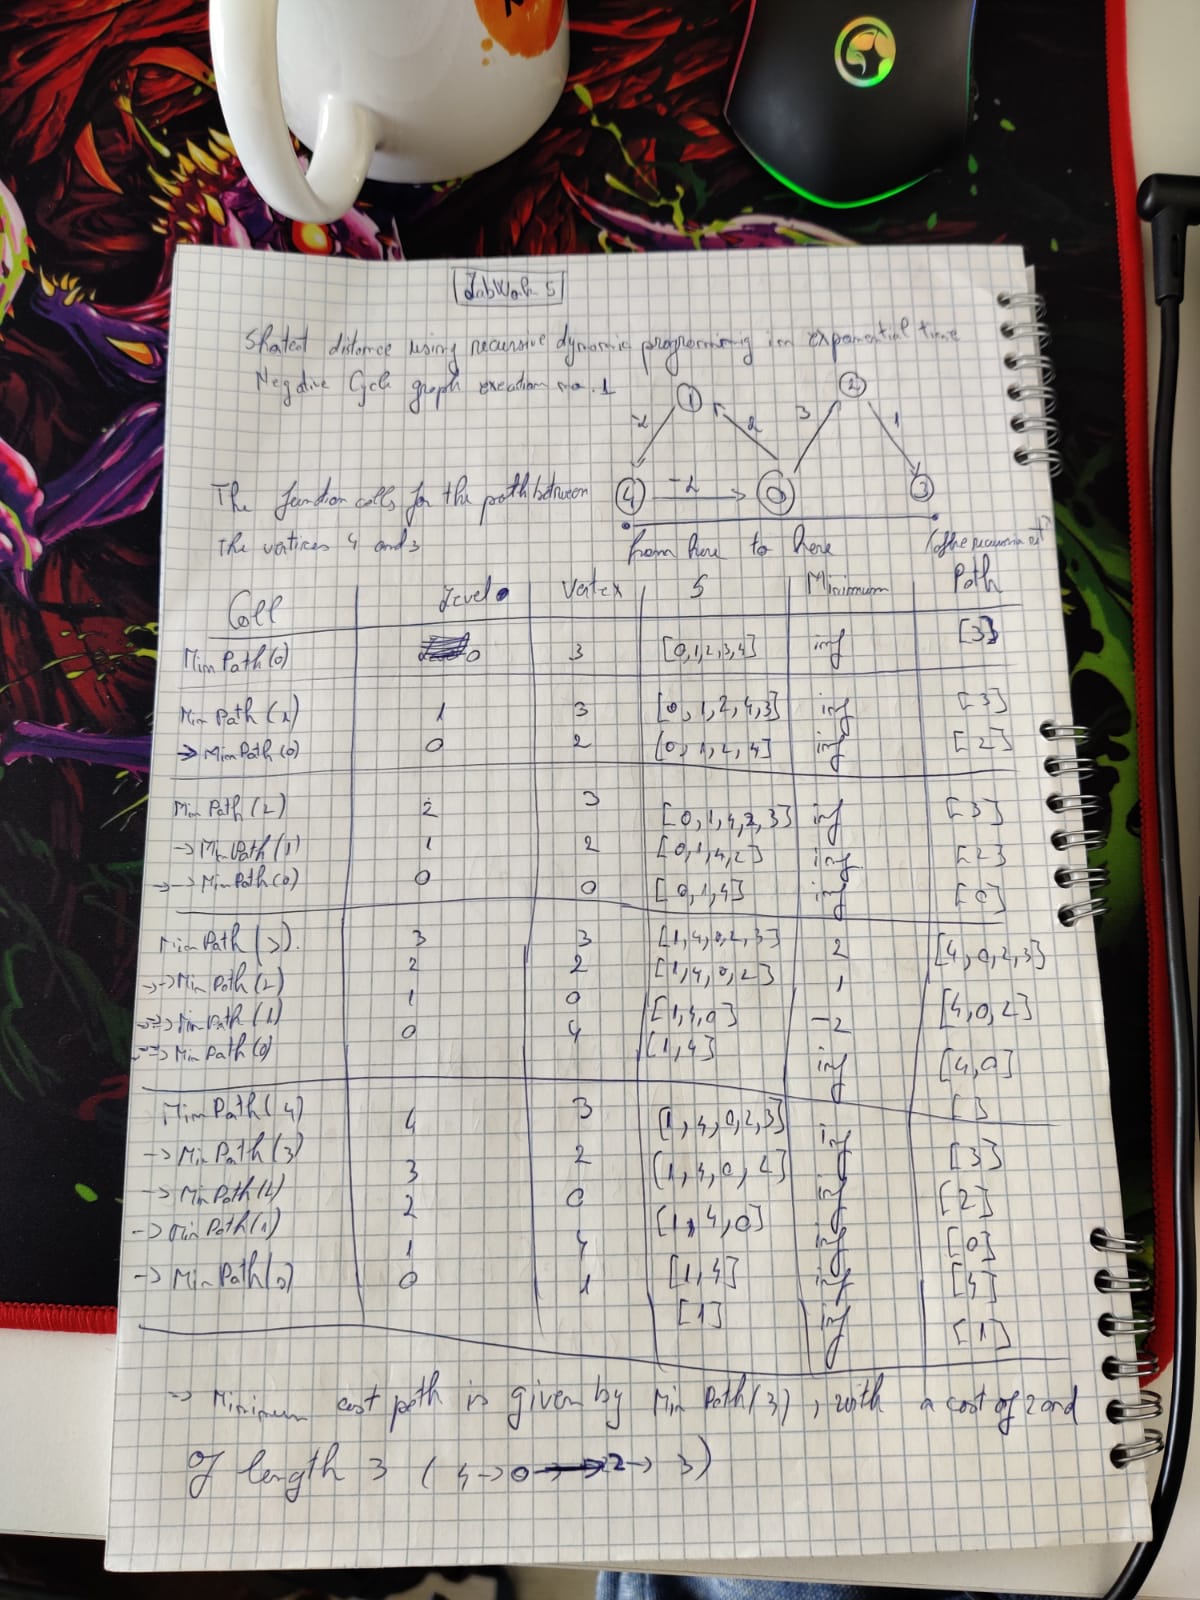 LabWork 5
Shortest distance using recursive dynamic programming in exponential time
Negative Cycle graph execution no. 1
1 2
-2 2 3 1
The function calls for the path between 4 -2 0 3
the vertices 4 and 3 from here to here
Call Level Vertex S Minimum Path
MinPath(0) 0 3 [0,1,2,3,4] inf [3]
MinPath(1) 1 3 [0,1,2,4,3] inf [3]
→ MinPath(0) 0 2 [0,1,2,4] inf [2]
MinPath(2) 2 3 [0,1,4,2,3] inf [3]
→ MinPath(1) 1 2 [0,1,4,2] inf [2]
→→ MinPath(0) 0 0 [0,1,4] inf [0]
MinPath(3). 3 3 [1,4,0,2,3] 2 [4,0,2,3]
→→ MinPath(2) 2 2 [1,4,0,2] 1 [4,0,2]
MinPath(1) 1 0 [1,4,0] -2 [4,0]
MinPath(0) 0 4 [1,4] inf [ ]
MinPath(4) 4 3 [1,4,0,2,3] inf [3]
→ MinPath(3) 3 2 [1,4,0,2] inf [2]
→ MinPath(2) 2 0 [1,4,0] inf [0]
→ MinPath(1) 1 4 [1,4] inf [4]
→ MinPath(0) 0 1 [1] inf [1]
→ Minimum cost path is given by MinPath(3), with a cost of 2 and
of length 3 (4→0→2→3)